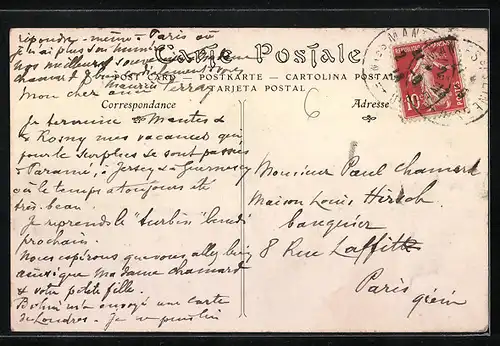 répondre - même - Paris où
je n'ai plus son numéro
Nos meilleurs souvenirs Madame
chamard & bons
Maurice Terray
Carte Postale
POST CARD — POSTKARTE — CARTOLINA POSTALE
TARJETA POSTAL
Correspondance
Adresse
6
REPUBLIQUE FRANÇAISE
10
POSTES
MANTES
Mon cher ami
Je termine Mantes &
Rosny mes vacances qui
pour le surplus se sont passées
Paramé, à Jersey & Guernesey
où le temps a toujours été
très beau.
Je reprends le "turbin" lundi
prochain.
Nous espérons que vous allez bien
ainsi que Madame chamard
& votre petite fille.
envoyé une carte
de Londres. Je
Monsieur Paul Chamard
Maison Louis Hirsch
banquier
8 Rue Laffitte
Paris